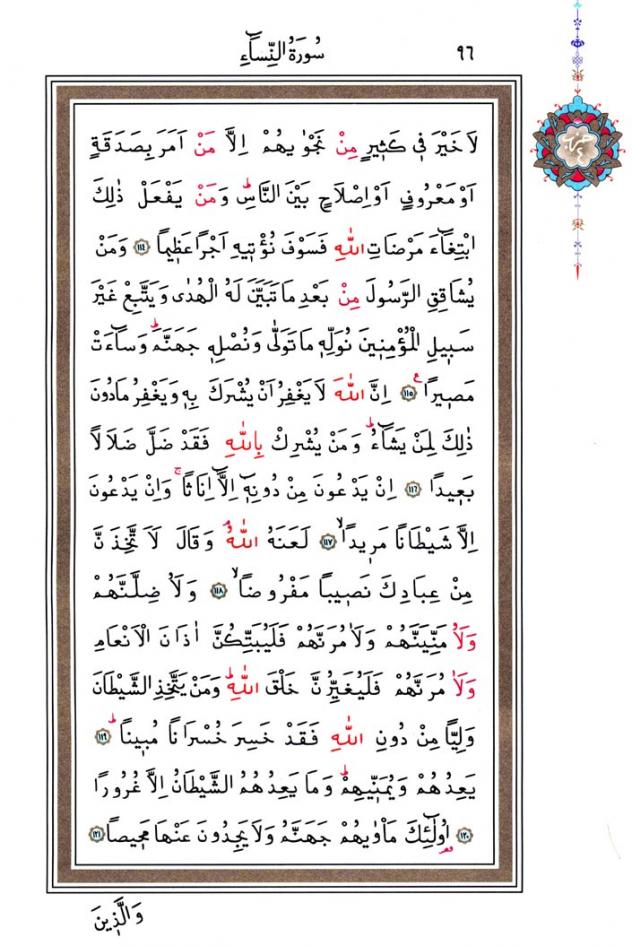 ٩٦ سُورَةُ النِّسَاءِ
لَا خَيْرَ ف۪ي كَث۪يرٍ مِنْ نَجْوٰيهُمْ اِلَّا مَنْ اَمَرَ بِصَدَقَةٍ
اَوْ مَعْرُوفٍ اَوْ اِصْلَاحٍ بَيْنَ النَّاسِۜ وَمَنْ يَفْعَلْ ذٰلِكَ
ابْتِغَٓاءَ مَرْضَاتِ اللّٰهِ فَسَوْفَ نُؤْت۪يهِ اَجْرًا عَظ۪يمًا ﴿١١٤﴾ وَمَنْ
يُشَاقِقِ الرَّسُولَ مِنْ بَعْدِ مَا تَبَيَّنَ لَهُ الْهُدٰى وَيَتَّبِعْ غَيْرَ
سَب۪يلِ الْمُؤْمِن۪ينَ نُوَلِّه۪ مَا تَوَلّٰى وَنُصْلِه۪ جَهَنَّمَۜ وَسَٓاءَتْ
مَص۪يرًا۟ ﴿١١٥﴾ اِنَّ اللّٰهَ لَا يَغْفِرُ اَنْ يُشْرَكَ بِه۪ وَيَغْفِرُ مَا دُونَ
ذٰلِكَ لِمَنْ يَشَٓاءُۜ وَمَنْ يُشْرِكْ بِاللّٰهِ فَقَدْ ضَلَّ ضَلَالًا
بَع۪يدًا ﴿١١٦﴾ اِنْ يَدْعُونَ مِنْ دُونِه۪ٓ اِلَّٓا اِنَاثًاۚ وَاِنْ يَدْعُونَ
اِلَّا شَيْطَانًا مَر۪يدًاۙ ﴿١١٧﴾ لَعَنَهُ اللّٰهُۢ وَقَالَ لَاَتَّخِذَنَّ
مِنْ عِبَادِكَ نَص۪يبًا مَفْرُوضًاۙ ﴿١١٨﴾ وَلَاُضِلَّنَّهُمْ
وَلَاُمَنِّيَنَّهُمْ وَلَاٰمُرَنَّهُمْ فَلَيُبَتِّكُنَّ اٰذَانَ الْاَنْعَامِ
وَلَاٰمُرَنَّهُمْ فَلَيُغَيِّرُنَّ خَلْقَ اللّٰهِۜ وَمَنْ يَتَّخِذِ الشَّيْطَانَ
وَلِيًّا مِنْ دُونِ اللّٰهِ فَقَدْ خَسِرَ خُسْرَانًا مُب۪ينًاۜ ﴿١١٩﴾
يَعِدُهُمْ وَيُمَنّ۪يهِمْۜ وَمَا يَعِدُهُمُ الشَّيْطَانُ اِلَّا غُرُورًا
﴿١٢٠﴾ اُو۬لٰٓئِكَ مَأْوٰيهُمْ جَهَنَّمُ وَلَا يَجِدُونَ عَنْهَا مَح۪يصًا ﴿١٢١﴾
وَالَّذ۪ينَ